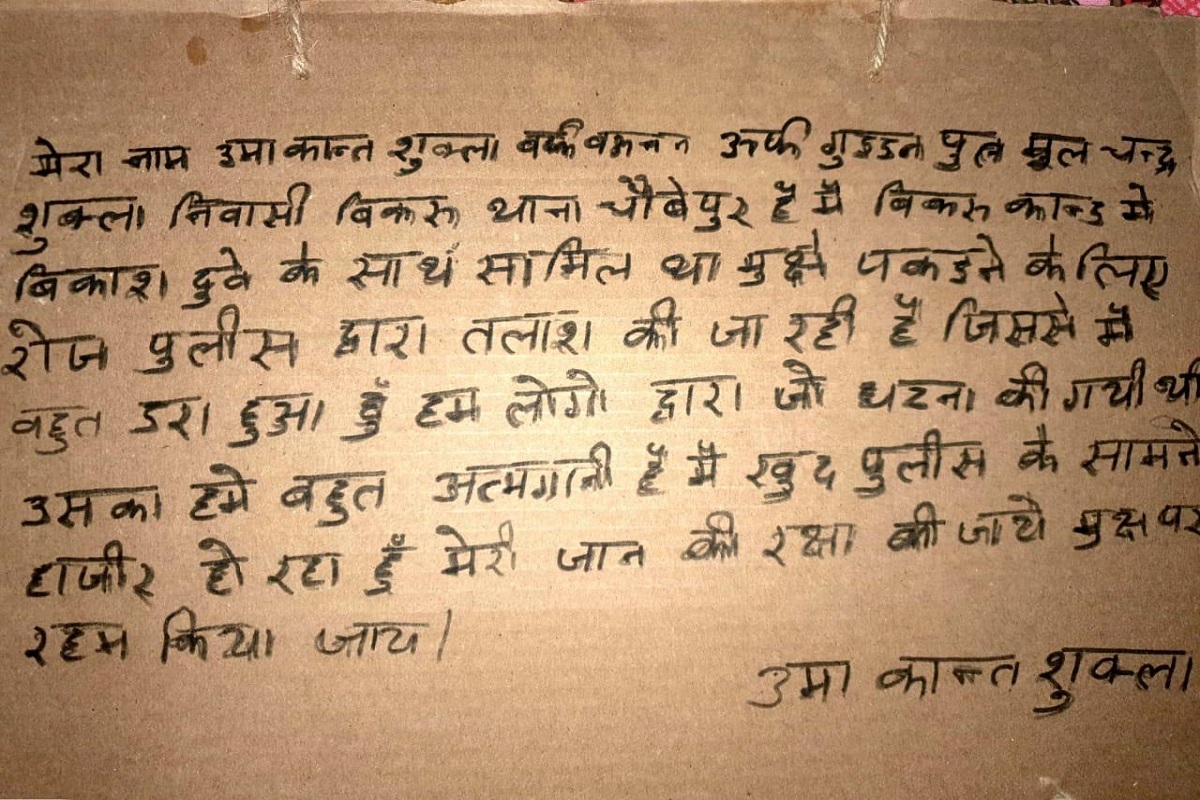 मेरा नाम उमा कान्त शुक्ला उर्फ गुडडन पुत्र मूल चन्द्र
शुक्ला निवासी बिकरू थाना चौबेपुर है मै बिकरू कान्ड मे
बिकाश दुवे के साथ सामिल था मुझे पकडने के लिए
रोज पुलीस द्वारा तलाश की जा रही है जिससे मै
वहुत डरा हुआ हुँ हम लोगो द्वारा जो घटना की गयी थी
उसका हमे बहुत अत्मग्लानी है मै खुद पुलीस के सामने
हाजीर हो रहा हुँ मेरी जान की रक्षा की जाये मुझ पर
रहम किया जाय।
उमा कान्त शुक्ला